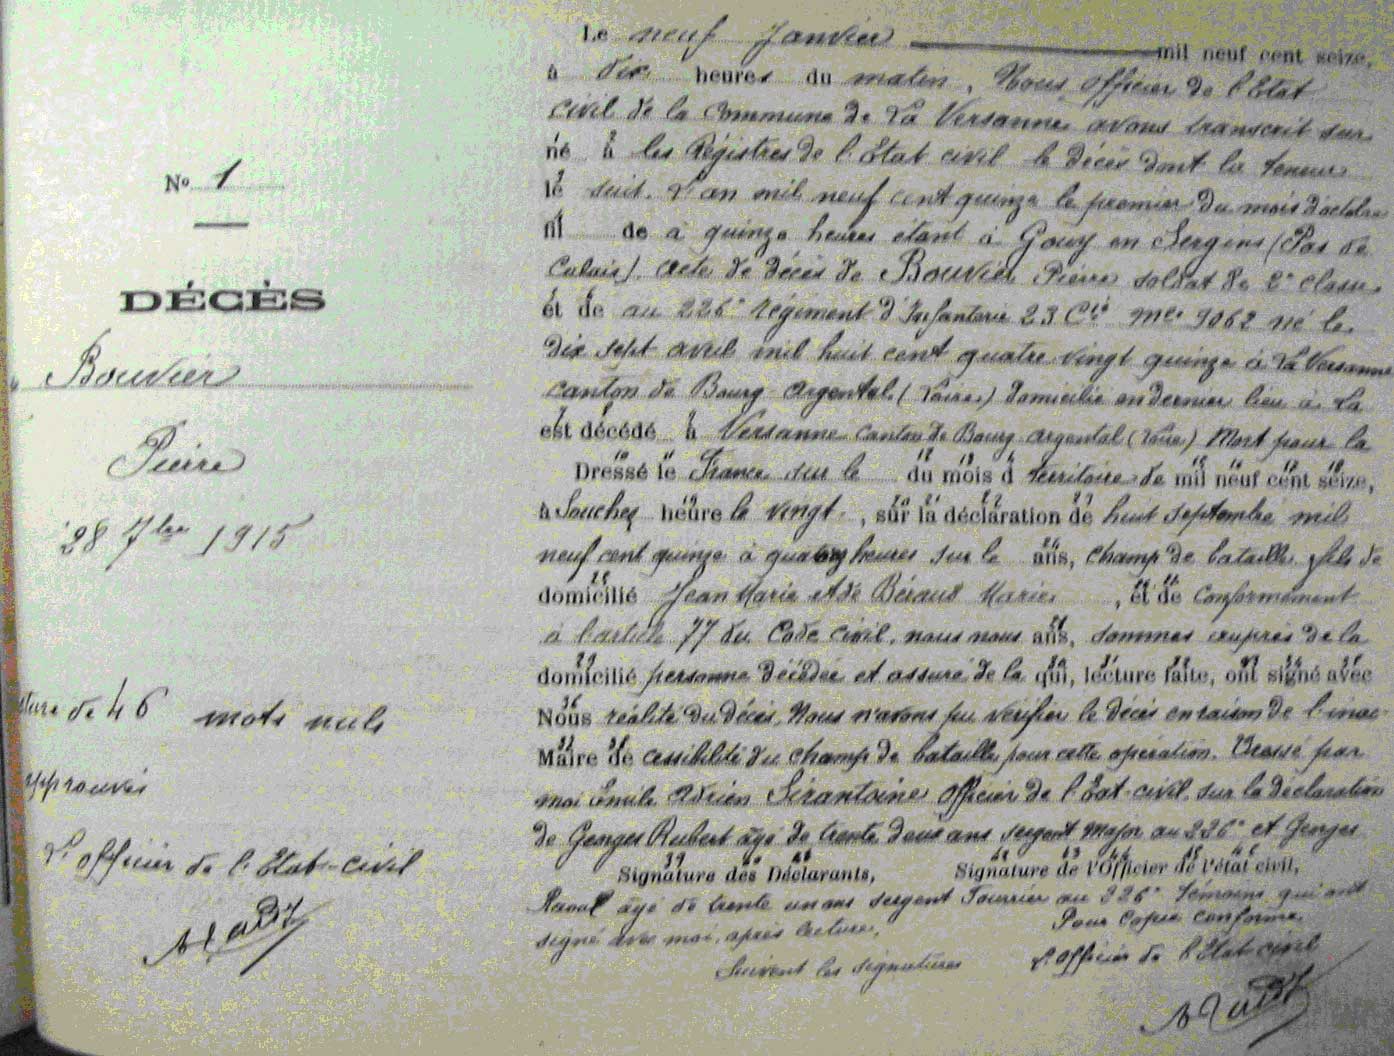 No 1
DÉCÈS
Bouvier
Pierre
28 7bre 1915
de 46 mots nuls
approuvés
L'officier de l'Etat-civil
Le neuf Janvier mil neuf cent seize,
à dix heures du matin, Nous officier de l'Etat
civil de la Commune de La Versanne avons transcrit sur
né à les Régistres de l'Etat civil le décès dont la teneur
le suit. L'an mil neuf cent quinze le premier du mois d'octobre
fil de à quinze heures étant à Gouy en Sergens (Pas de
Calais). acte de décès de Bouvier Pierre soldat de 2e classe
et de au 226e Régiment d'Infanterie 23 Cie Mle 9062 né le
Dix sept avril mil huit cent quatre vingt quinze à La Versanne
canton de Bourg-Argental (Loire) domicilié en dernier lieu à La
est décédé à Versanne canton de Bourg argental (Loire) Mort pour la
Dressé le France sur le du mois d territoire de mil neuf cent seize,
à Souchez heure le vingt, sur la déclaration de huit septembre mil
neuf cent quinze à quatorze heures sur le ans, champ de bataille, fils de
domicilié Jean Marie et de Béraud Marie, et de Conformément
à l'article 77 du Code civil, nous nous ans, sommes auprès de la
domicilié personne décédée et assuré de la qui, lecture faite, ont signé avec
Nous réalité du décès. Nous n'avons pu vérifier le décès en raison de l'inac-
Maire de cessibilité du champ de bataille pour cette opération. Dressé par
moi Emile Adrien Sirantoine Officier de l'Etat-civil, sur la déclaration
de Georges Robert âgé de trente deux ans sergent Major au 226e et Georges
Signature des Déclarants, Signature de l'Officier de l'état civil,
Raoul âgé de trente un ans sergent Fourrier au 226e témoins qui ont
signé avec moi, après lecture. Pour Copie conforme
Suivent les signatures L'officier de l'Etat civil